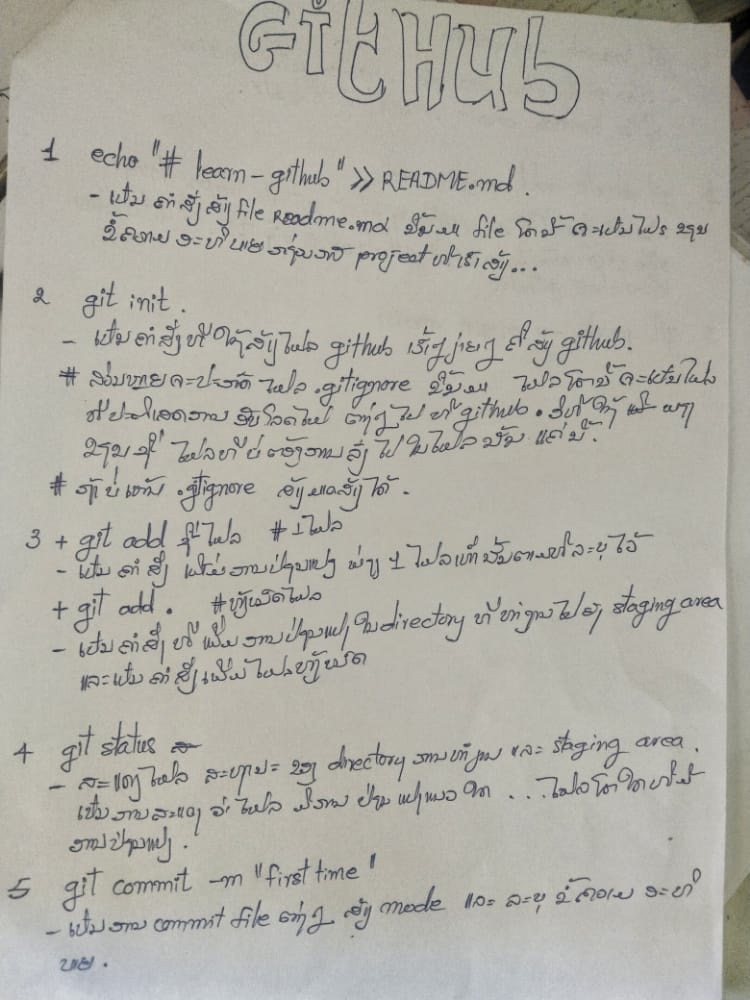 GitHub
1 echo "# learn-github" >> README.md.
- ເປັນ ຄຳ ສັ່ງ ສ້າງ file readme.md ຊຶ່ງ file ໂຕນີ້ ຈະເປັນໄຟຣ ຂຽນ
ຂໍ້ຄວາມ ອະທິບາຍ ກ່ຽວກັບ project ທີ່ເຮົາ ສ້າງ...
2 git init.
- ເປັນ ຄຳ ສັ່ງ ທີ່ ໃຊ້ ສ້າງ ໄຟລ github ງ່າຍໆ ຄື ສ້າງ github.
# ສ່ວນຫຼາຍ ຈະປະກົດ ໄຟລ .gitignore ໄຟລ ໂຕນີ້ ຈະເປັນໄຟລ
ທີ່ປະຕິເສດການ ອັບໂລດໄຟ ຕ່າງໆ ໄປ ທີ່ github. ວິທີ ໃຊ້ ພຽງ
ຂຽນ ຊື່ ໄຟລທີ່ ບໍ່ ຕ້ອງການ ສົ່ງ ໄປ ໃນໄຟລ ນັ້ນ ແຄ່ ນີ້.
# ຖ້າ ບໍ່ ເຫັນ .gitignore ສ້າງ ໄດ້.
3 + git add ຊື່ ໄຟລ # 1 ໄຟລ
- ເປັນ ຄຳ ສັ່ງ ເພີ່ມ ການປ່ຽນແປງ ພຽງ 1 ໄຟລ ເທົ່ານັ້ນຕາມທີ່ລະບຸ ໄວ້
+ git add . # ທັງໝົດໄຟລ
- ເປັນ ຄຳ ສັ່ງ ທີ່ ເພີ່ມ ການປ່ຽນແປງ ໃນ directory ທີ່ ທຳງານ ໄປ ຍັງ staging area
ແລະເປັນ ຄຳ ສັ່ງ ເພີ່ມ ໄຟລ ທັງໝົດ
4 git status
- ສະແດງ ໄຟລ ສະຖານະ ຂອງ directory ການທຳງານ ແລະ staging area.
ເປັນ ການສະແດງ ວ່າ ໄຟລ ມີການ ປ່ຽນ ແປງແນວ ໃດ ... ໄຟລ ໂຕໃດ ທີ່ມີ
ການປ່ຽນແປງ.
5 git commit -m "first time"
- ເປັນ ການ commit file ຕ່າງໆ ສ້າງ mode ແລະ ລະບຸ ຂໍ້ຄວາມ ອະທິ
ບາຍ.